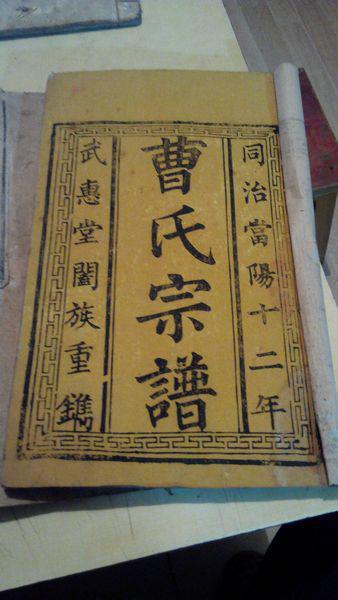 同治當陽十二年
曹氏宗譜
武惠堂闔族重鐫